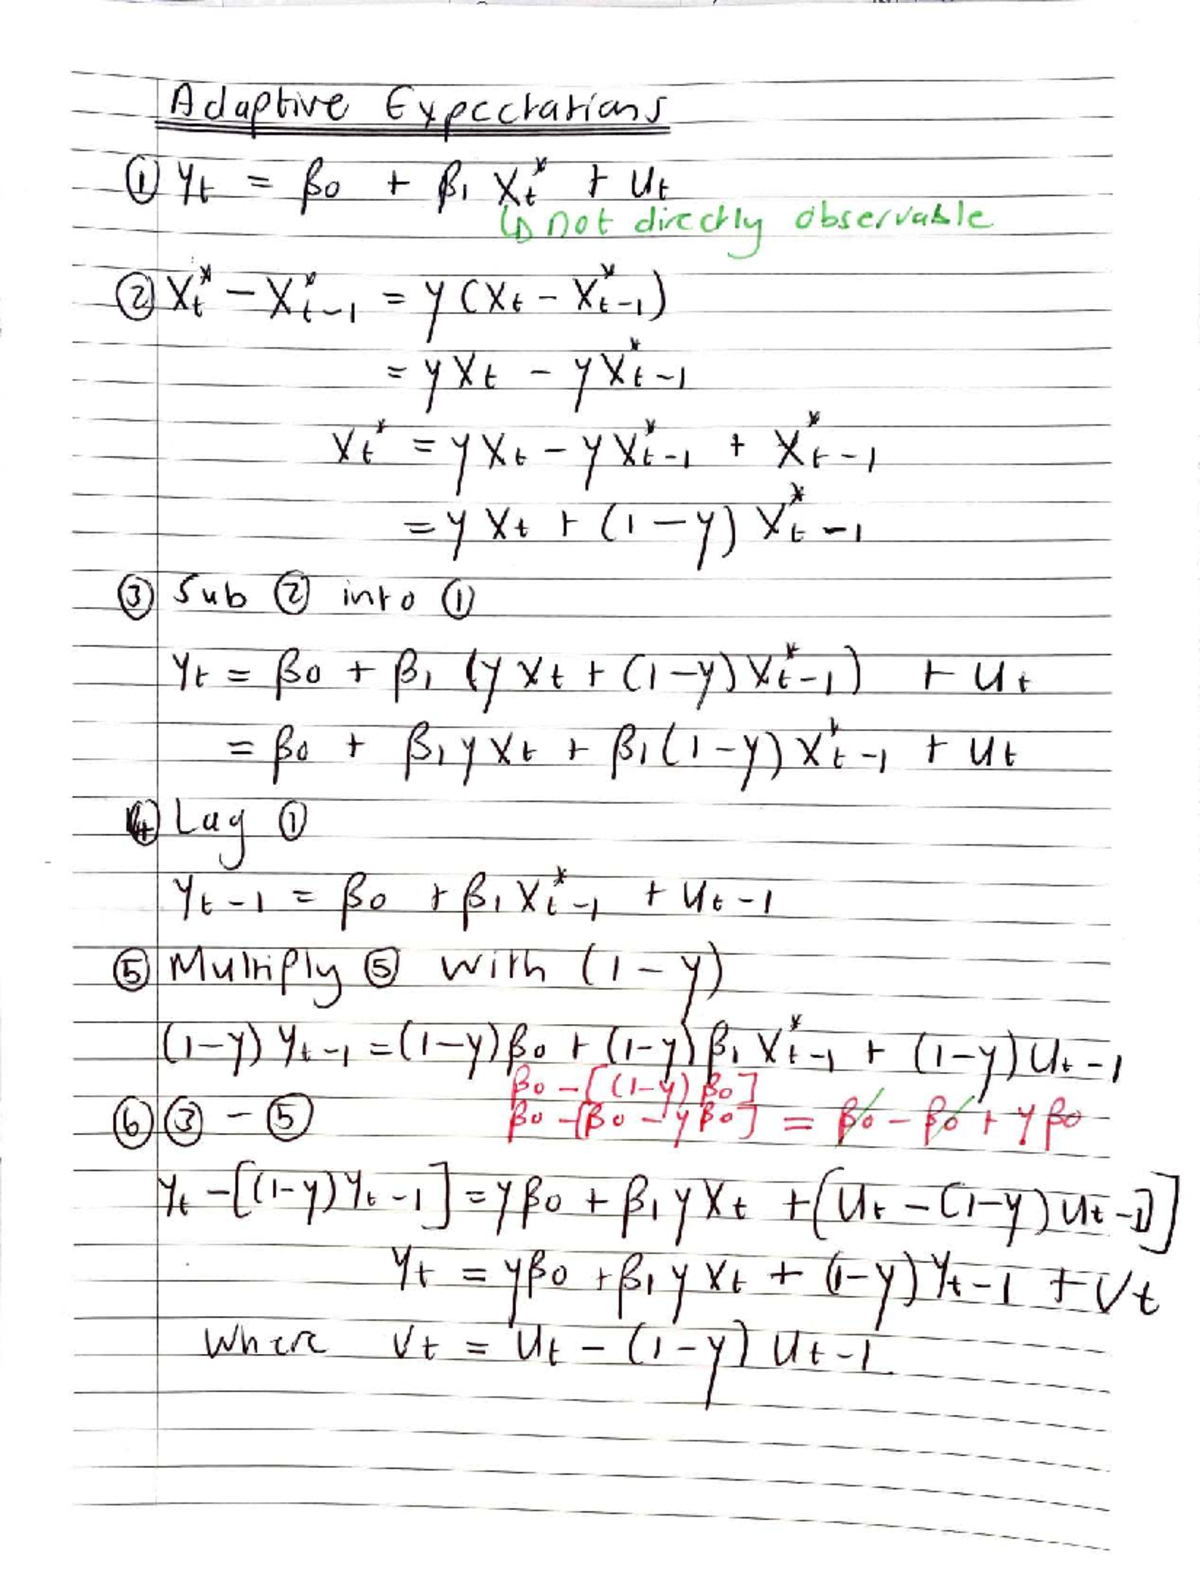 Adaptive Expectations
① Yt = β0 + β1 Xt* + Ut
↳ not directly observable
② Xt* − X*t−1 = γ(Xt − X*t−1)
= γXt − γX*t−1
Xt* = γXt − γX*t−1 + X*t−1
= γXt + (1−γ) X*t−1
③ Sub ② into ①
Yt = β0 + β1 (γXt + (1−γ)X*t−1) + Ut
= β0 + β1γXt + β1(1−γ)X*t−1 + Ut
④ Lag ①
Yt−1 = β0 + β1X*t−1 + Ut−1
⑤ Multiply ⑤ with (1−γ)
(1−γ)Yt−1 = (1−γ)β0 + (1−γ)β1X*t−1 + (1−γ)Ut−1
β0 − [(1−γ)β0]
⑥ ③ − ⑤ β0 − [β0 − γβ0] = β0 − β0 + γβ0
Yt − [(1−γ)Yt−1] = γβ0 + β1γXt + [Ut − (1−γ)Ut−1]
Yt = γβ0 + β1γXt + (1−γ)Yt−1 + Vt
Where Vt = Ut − (1−γ)Ut−1